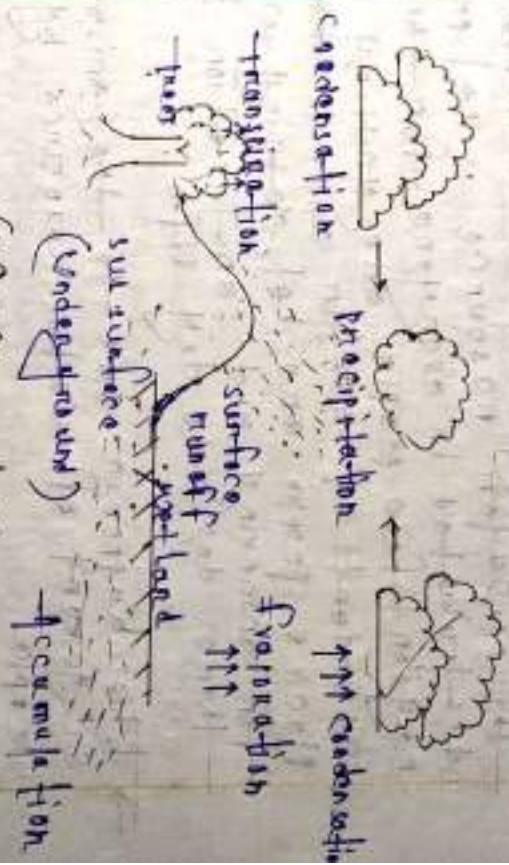 Condensation
precipitation
↑↑↑ condensatio
transpiration
from
surface
runoff
Evaporation
↑↑↑
wetland
sub surface
(Underground)
Accumulation